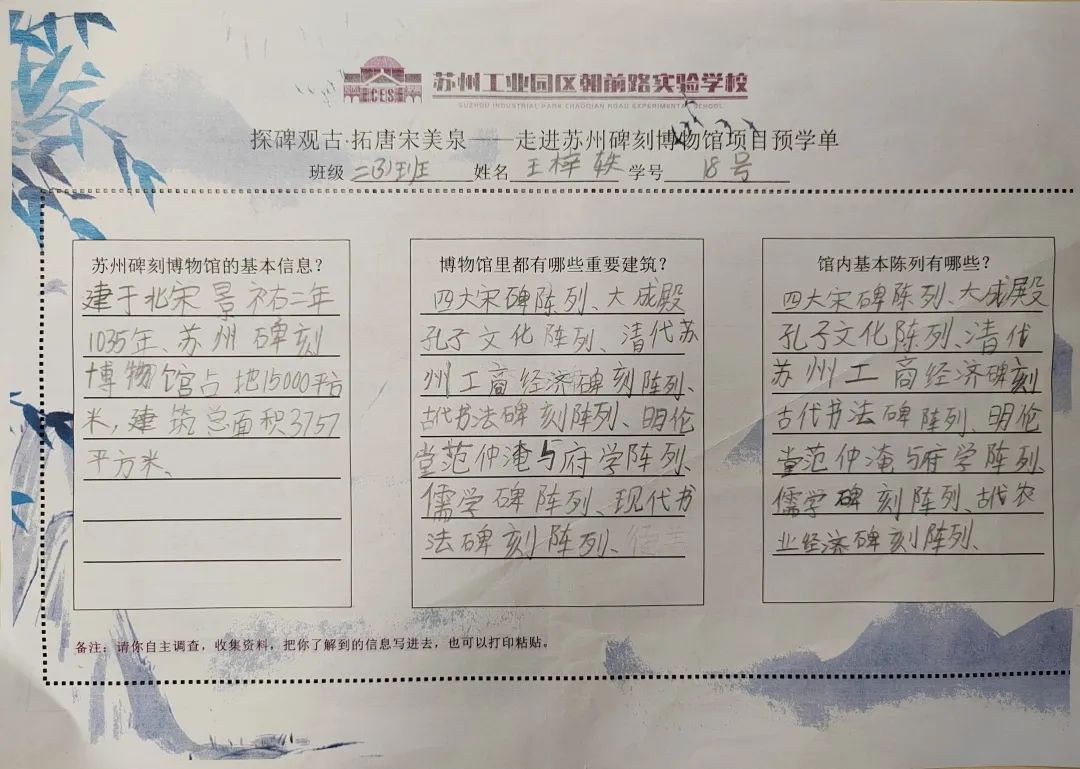 CES
苏州工业园区朝前路实验学校
SUZHOU INDUSTRIAL PARK CHAOQIAN ROAD EXPERIMENTAL SCHOOL
探碑观古·拓唐宋美泉——走进苏州碑刻博物馆项目预学单
班级 二(3)班 姓名 王梓轶 学号 18号
苏州碑刻博物馆的基本信息？
建于北宋景祐二年
1035年、苏州碑刻
博物馆占地15000平方
米，建筑总面积3757
平方米、
博物馆里都有哪些重要建筑？
四大宋碑陈列、大成殿
孔子文化陈列、清代苏
州工商经济碑刻陈列、
古代书法碑刻阵列、明伦
堂范仲淹与府学阵列、
儒学碑阵列、现代书
法碑刻阵列、
馆内基本陈列有哪些？
四大宋碑陈列、大成殿
孔子文化陈列、清代
苏州工商经济碑刻
古代书法碑阵列、明伦
堂范仲淹与府学阵列
儒学碑刻阵列、古代农
业经济碑刻阵列、
备注：请你自主调查，收集资料，把你了解到的信息写进去，也可以打印粘贴。